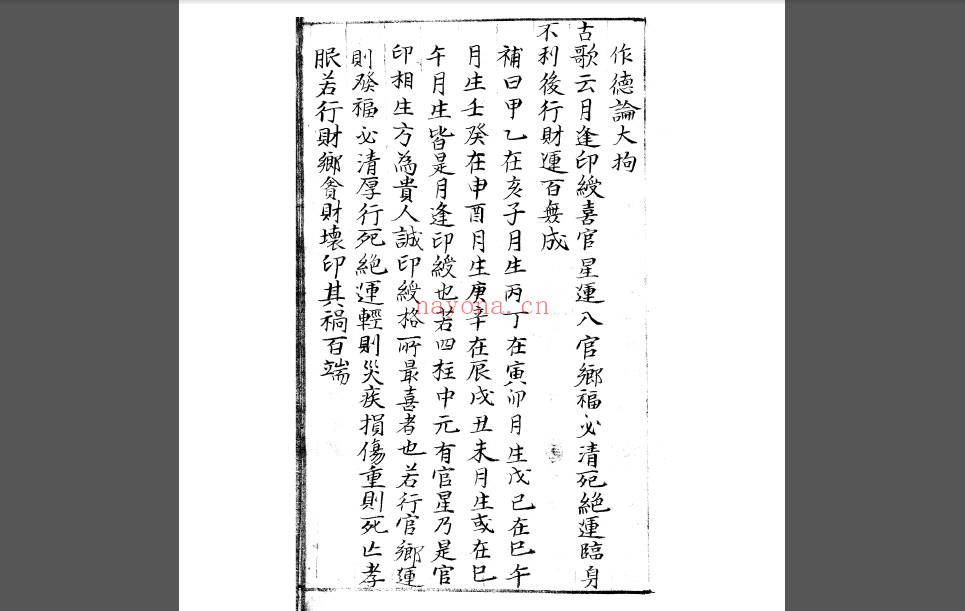 作德論大拘
古歌云月逢印綬喜官星運入官鄉福必清死絕運臨身
不利後行財運百無成
補曰甲乙在亥子月生丙丁在寅卯月生戊己在巳午
月生壬癸在申酉月生庚辛在辰戌丑未月生或在巳
午月生皆是月逢印綬也若四柱中元有官星乃是官
印相生方為貴人誠印綬格所最喜者也若行官鄉運
則發福必清厚行死絕運輕則災疾損傷重則死亡孝
服若行財鄉貪財壞印其禍百端
nayona.cn